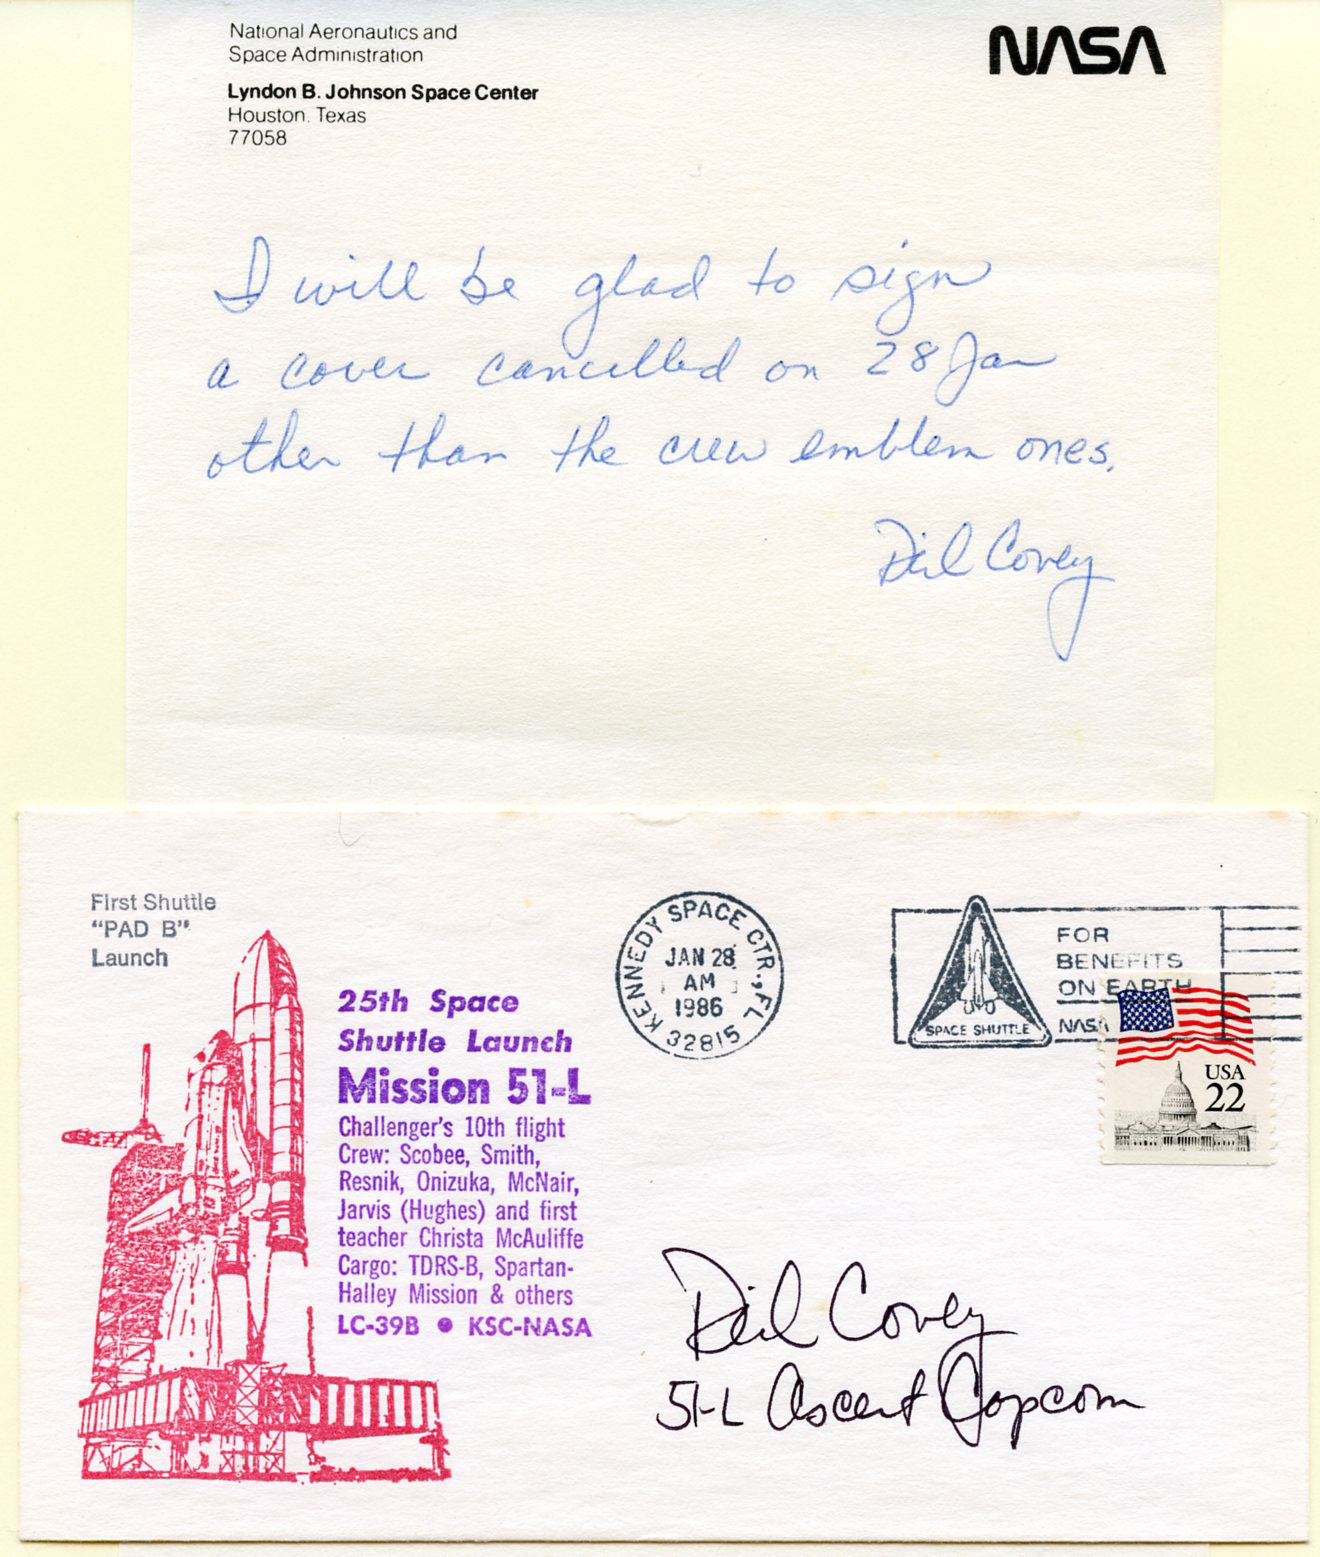 National Aeronautics and
Space Administration
Lyndon B. Johnson Space Center
Houston, Texas
77058
NASA
I will be glad to sign
a cover cancelled on 28 Jan
other than the crew emblem ones.
Dick Covey
First Shuttle
"PAD B"
Launch
25th Space
Shuttle Launch
Mission 51-L
Challenger's 10th flight
Crew: Scobee, Smith,
Resnik, Onizuka, McNair,
Jarvis (Hughes) and first
teacher Christa McAuliffe
Cargo: TDRS-B, Spartan-
Halley Mission & others
LC-39B ● KSC-NASA
KENNEDY SPACE CTR., FL
JAN 28
AM
1986
32815
SPACE SHUTTLE
FOR
BENEFITS
ON EARTH
NASA
USA
22
Dick Covey
51-L Ascent Capcom